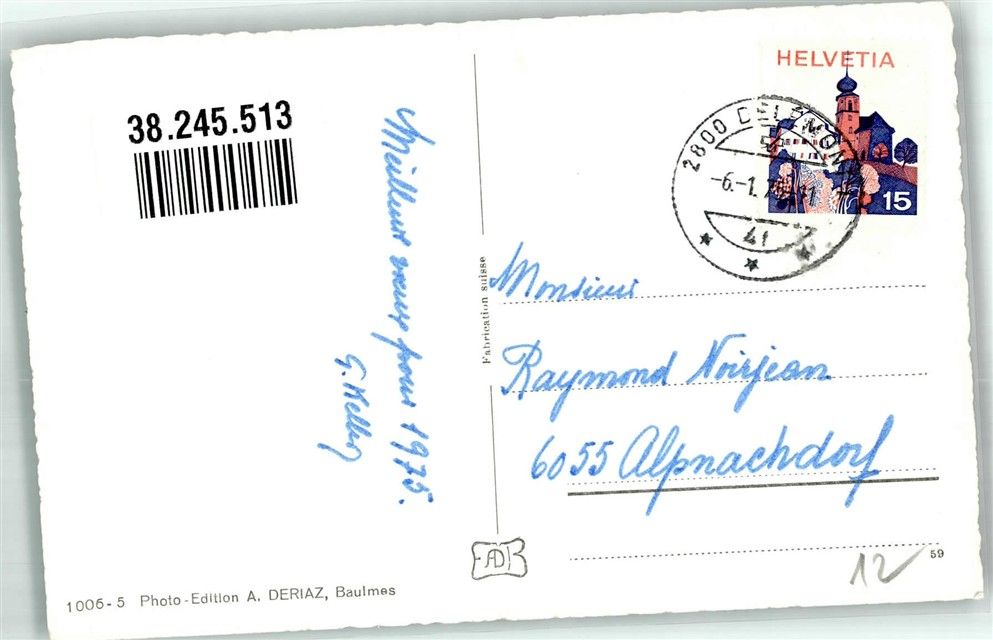 38.245.513
Meilleurs vœux pour 1975.
HELVETIA
15
2800 DELÉMONT
-6.-1.
Fabrication suisse
Monsieur
Raymond Noirjean
6055 Alpnachdorf
AD
59
12
1006-5 Photo-Edition A. DERIAZ, Baulmes